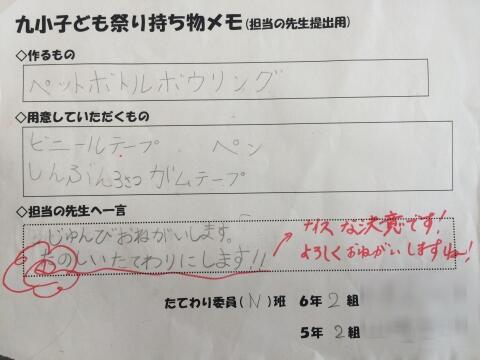 九小子ども祭り持ち物メモ(担当の先生提出用)
◇作るもの
ペットボトルボウリング
◇用意していただくもの
ビニールテープ ペン
しんぶん3さつ ガムテープ
◇担当の先生へ一言
じゅんびおねがいします。
たのしいたてわりにします!!
ナイスな決意です!
よろしくおねがいしますねー!
たてわり委員(N)班 6年2組
5年2組